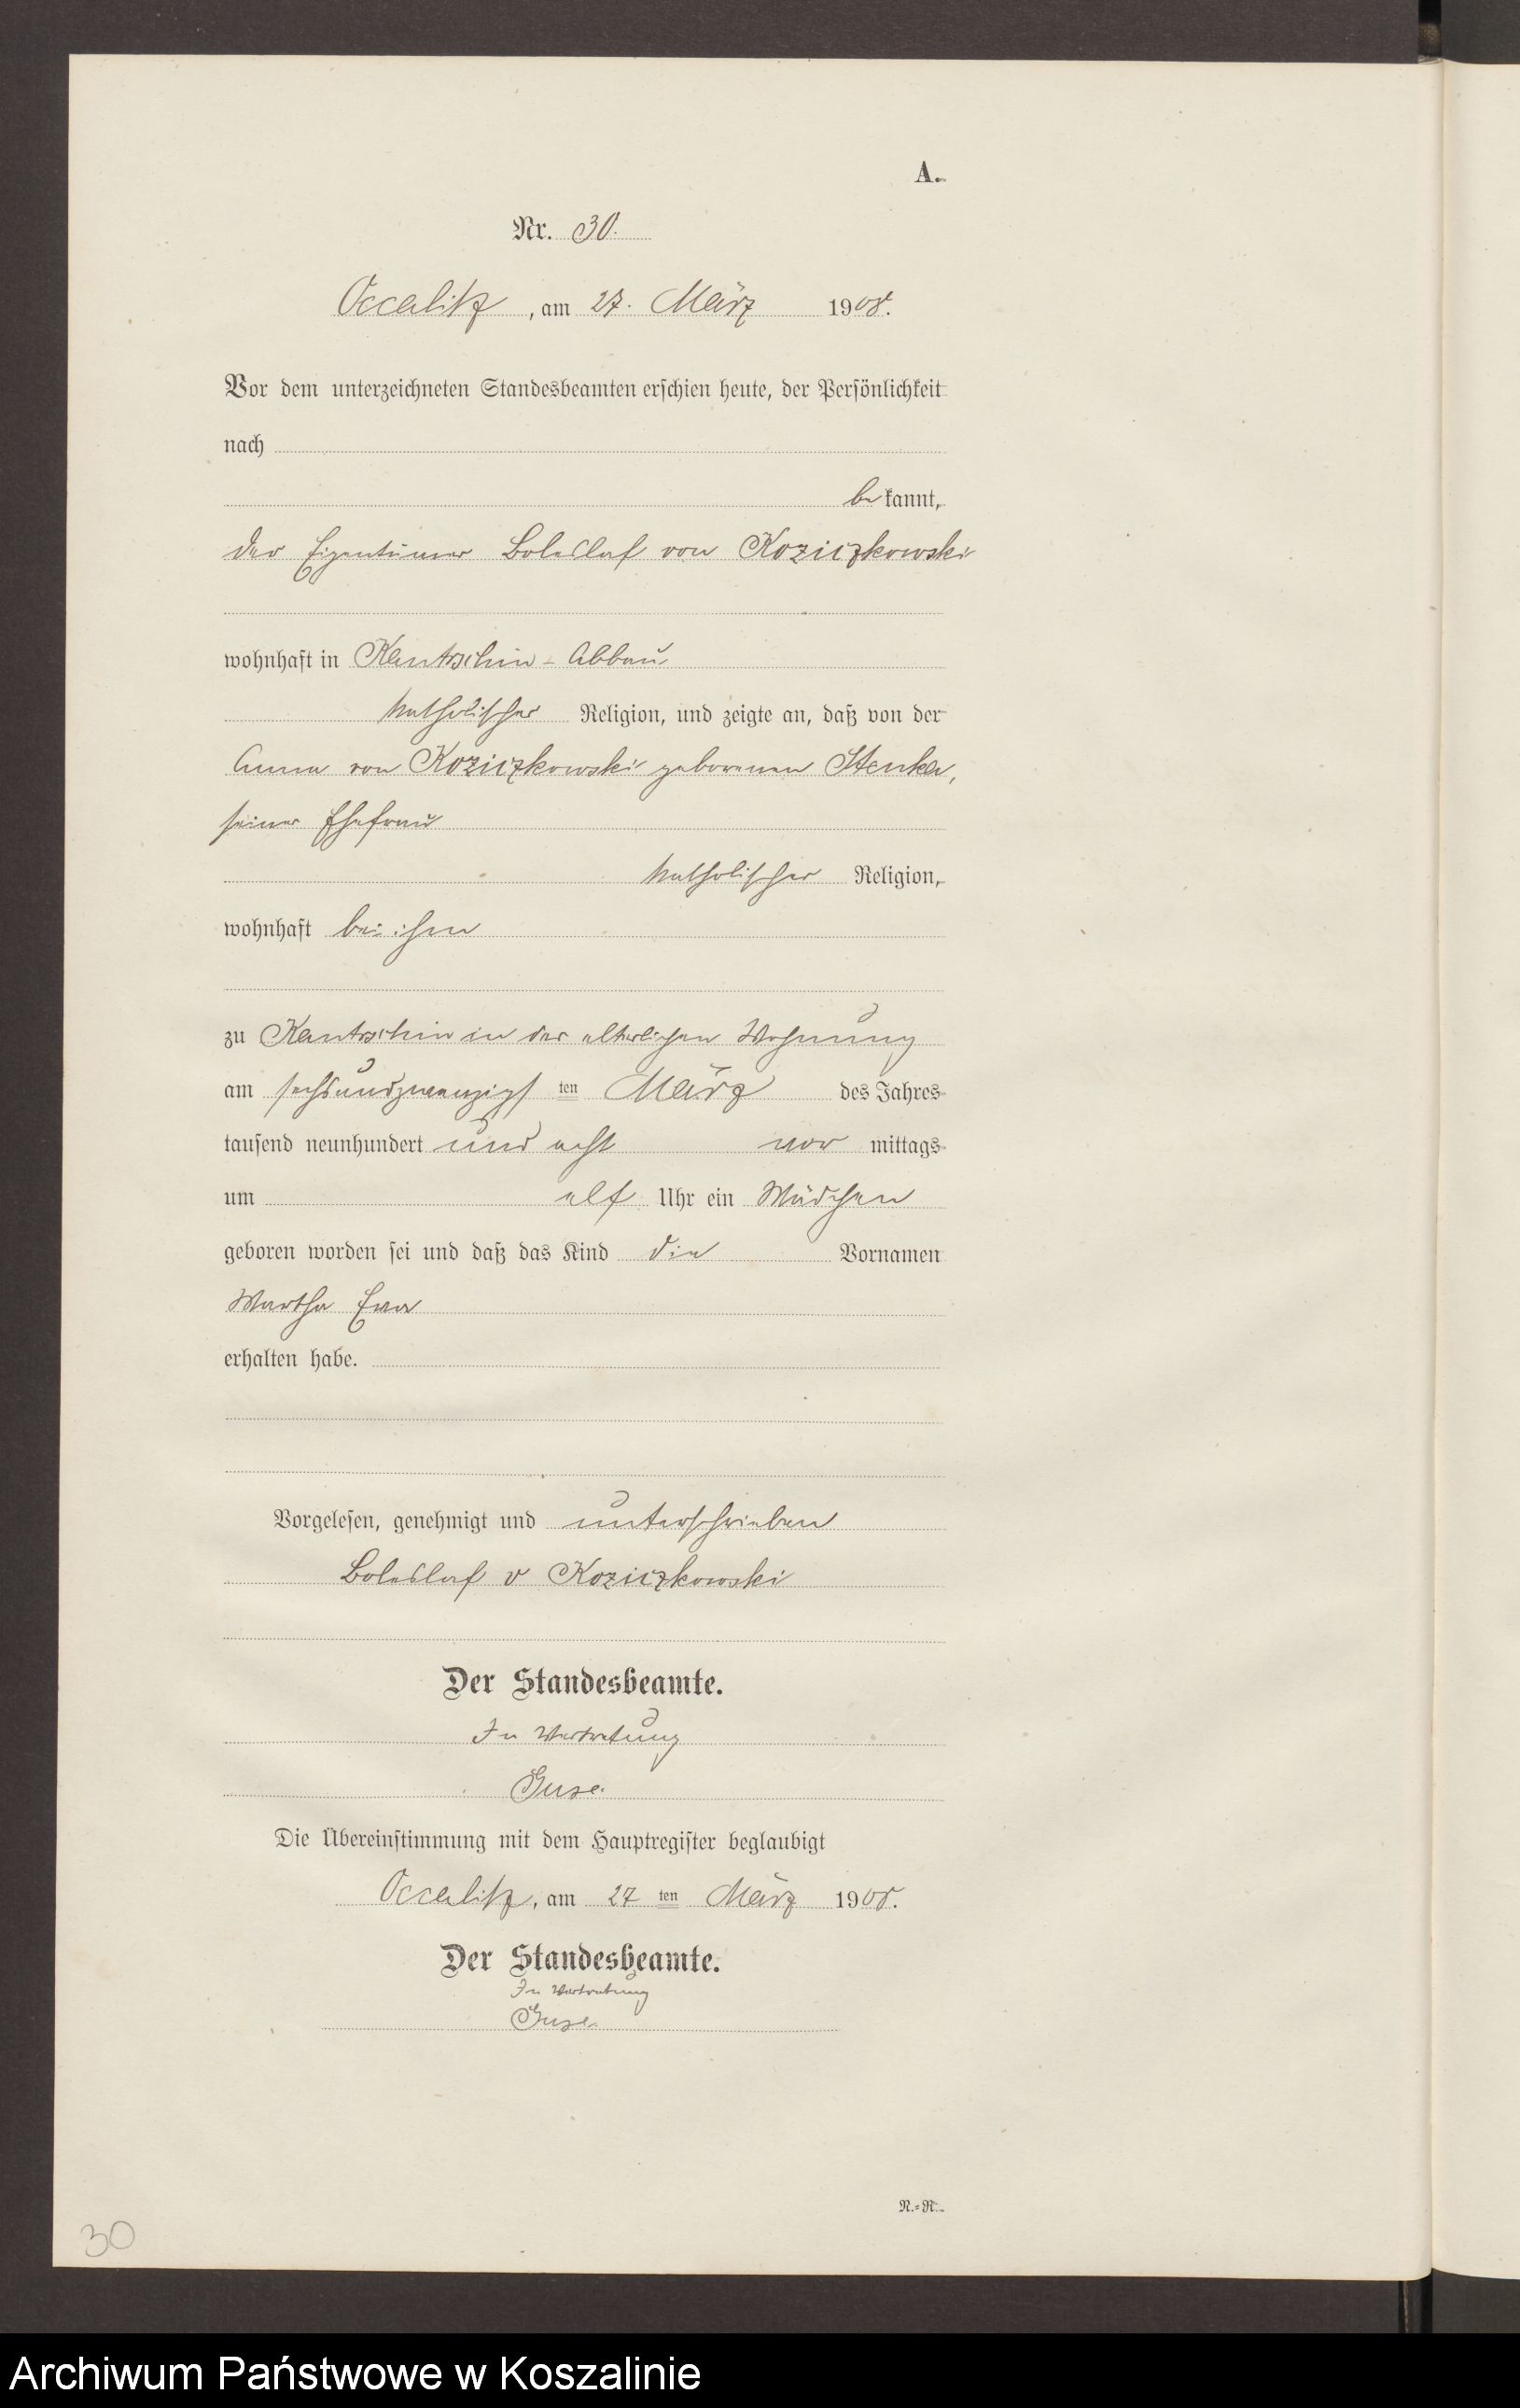 A.
Nr. 30.
Occalitz, am 27. März 1908.
Vor dem unterzeichneten Standesbeamten erschien heute, der Persönlichkeit
nach
bekannt,
der Eigentümer Boleslaf von Koziczkowski
wohnhaft in Kantrschin - Abbau
katholischer Religion, und zeigte an, daß von der
Anna von Koziczkowski geborenen Stenka,
seiner Ehefrau
katholischer Religion,
wohnhaft bei ihm
zu Kantrschin in der elterlichen Wohnung
am sechsundzwanzigsten März des Jahres
tausend neunhundert und acht vormittags
um elf Uhr ein Mädchen
geboren worden sei und daß das Kind die Vornamen
Martha Eva
erhalten habe.
Vorgelesen, genehmigt und unterschrieben
Boleslaf v Koziczkowski
Der Standesbeamte.
In Vertretung
Guse.
Die Übereinstimmung mit dem Hauptregister beglaubigt
Occalitz, am 27 ten März 1908.
Der Standesbeamte.
In Vertretung
Guse.
N.=R.
30
Archiwum Państwowe w Koszalinie